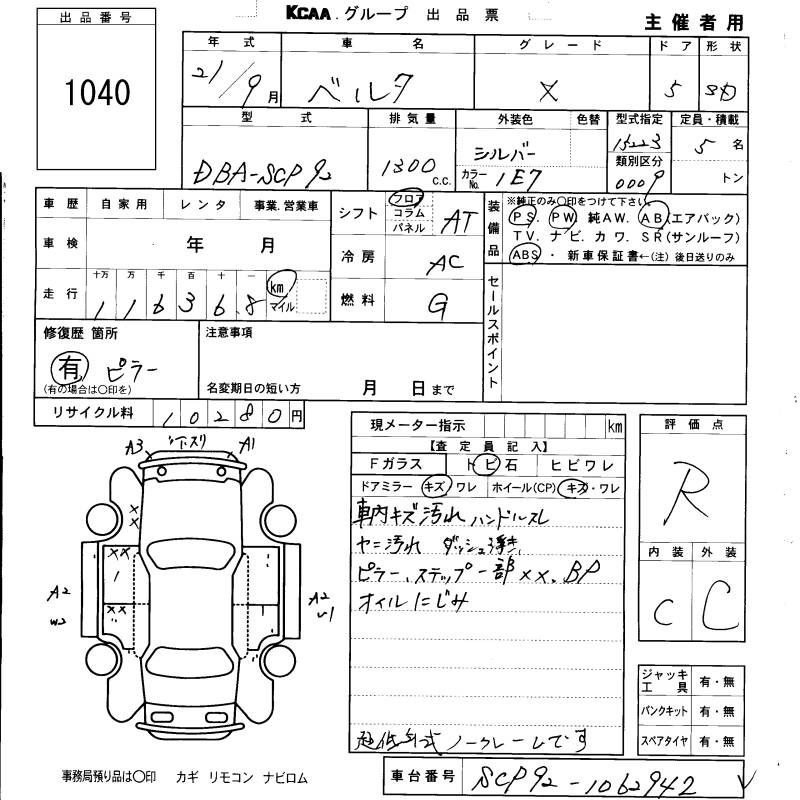 KCAA.グループ 出品票
主催者用
出品番号
1040
年式 車名 グレード ドア 形状
21/9月 ベルタ X 5 SD
型式 排気量 外装色 色替 型式指定 定員・積載
DBA-SCP92 1300c.c. シルバー 15223 5名
カラーNo. 1E7 類別区分 0009 トン
車歴 自家用 レンタ 事業.営業車
車検 年 月
走行 十万 万 千 百 十 一 km マイル
116368
シフト フロア コラム パネル AT
冷房 AC
燃料 G
装備品 ※純正のみ〇印をつけて下さい
PS. PW 純AW. AB(エアバック)
TV. ナビ. カワ. SR(サンルーフ)
ABS・新車保証書←(注)後日送りのみ
セールスポイント
修復歴 箇所
有 ピラー
(有の場合は〇印を)
注意事項
名変期日の短い方 月 日まで
リサイクル料 10280円
現メーター指示 km
【査定員記入】
Fガラス トビ石 ヒビワレ
ドアミラー キズ ワレ ホイール(CP) キズ・ワレ
車内キズ汚れ ハンドルスレ
ヤニ汚れ ダッシュ浮き
ピラー、ステップ一部××. BP
オイルにじみ
ノークレームです
評価点
R
内装 外装
C C
A3 A1
×
×
××
××
A2
W2
A2
ジャッキ工具 有・無
パンクキット 有・無
スペアタイヤ 有・無
事務局預り品は〇印 カギ リモコン ナビロム
車台番号 SCP92-1062942